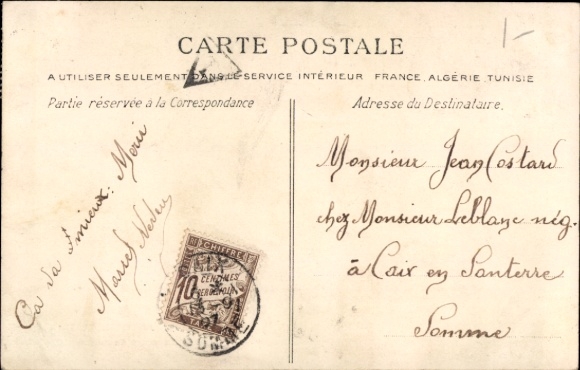 1-
CARTE POSTALE
A UTILISER SEULEMENT DANS LE SERVICE INTÉRIEUR FRANCE, ALGÉRIE, TUNISIE
Partie réservée à la Correspondance
Adresse du Destinataire.
Ca va mieux. Merci
Marcel
CHIFFRE
10 CENTIMES
A PERCEVOIR
CAIX
SOMME
Monsieur Jean Costard
chez Monsieur Leblanc nég.
à Caix en Santerre
Somme